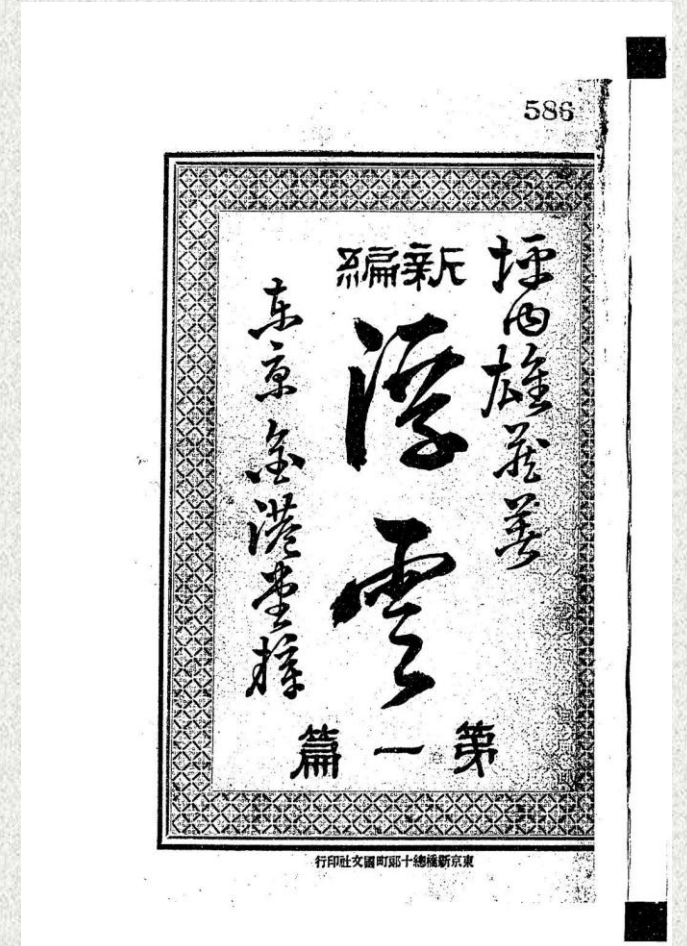 586
坪内雄蔵著
新編
浮雲
第一篇
東京金港堂梓
東京新橋總十郎町國文社印行